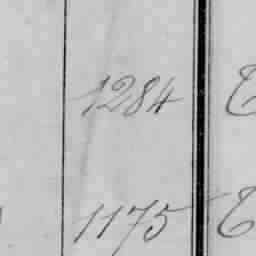 1284
1175